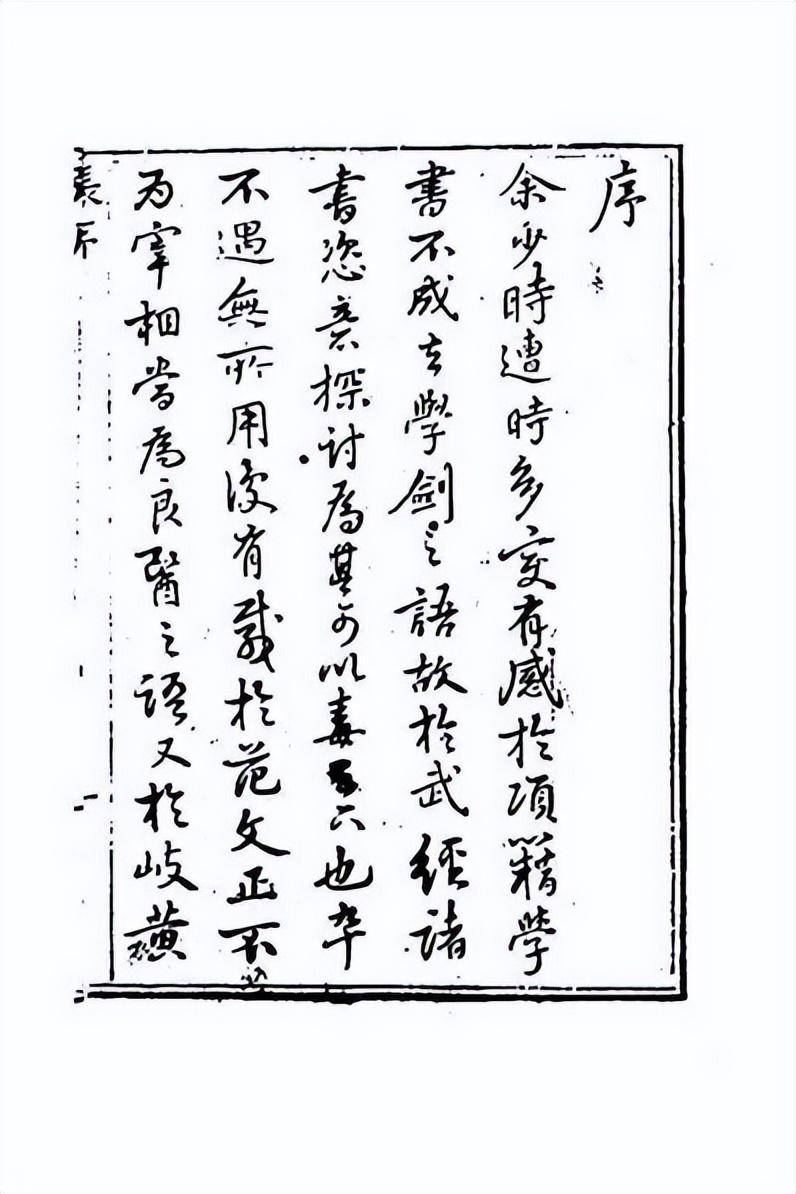 序
余少時遭時多变有感於項籍學
書不成去學劍之語故於武經諸
書恣意探討為其可以毒天下也卒
不遇無所用後有感於范文正不
为宰相當為良醫之語又於岐黃